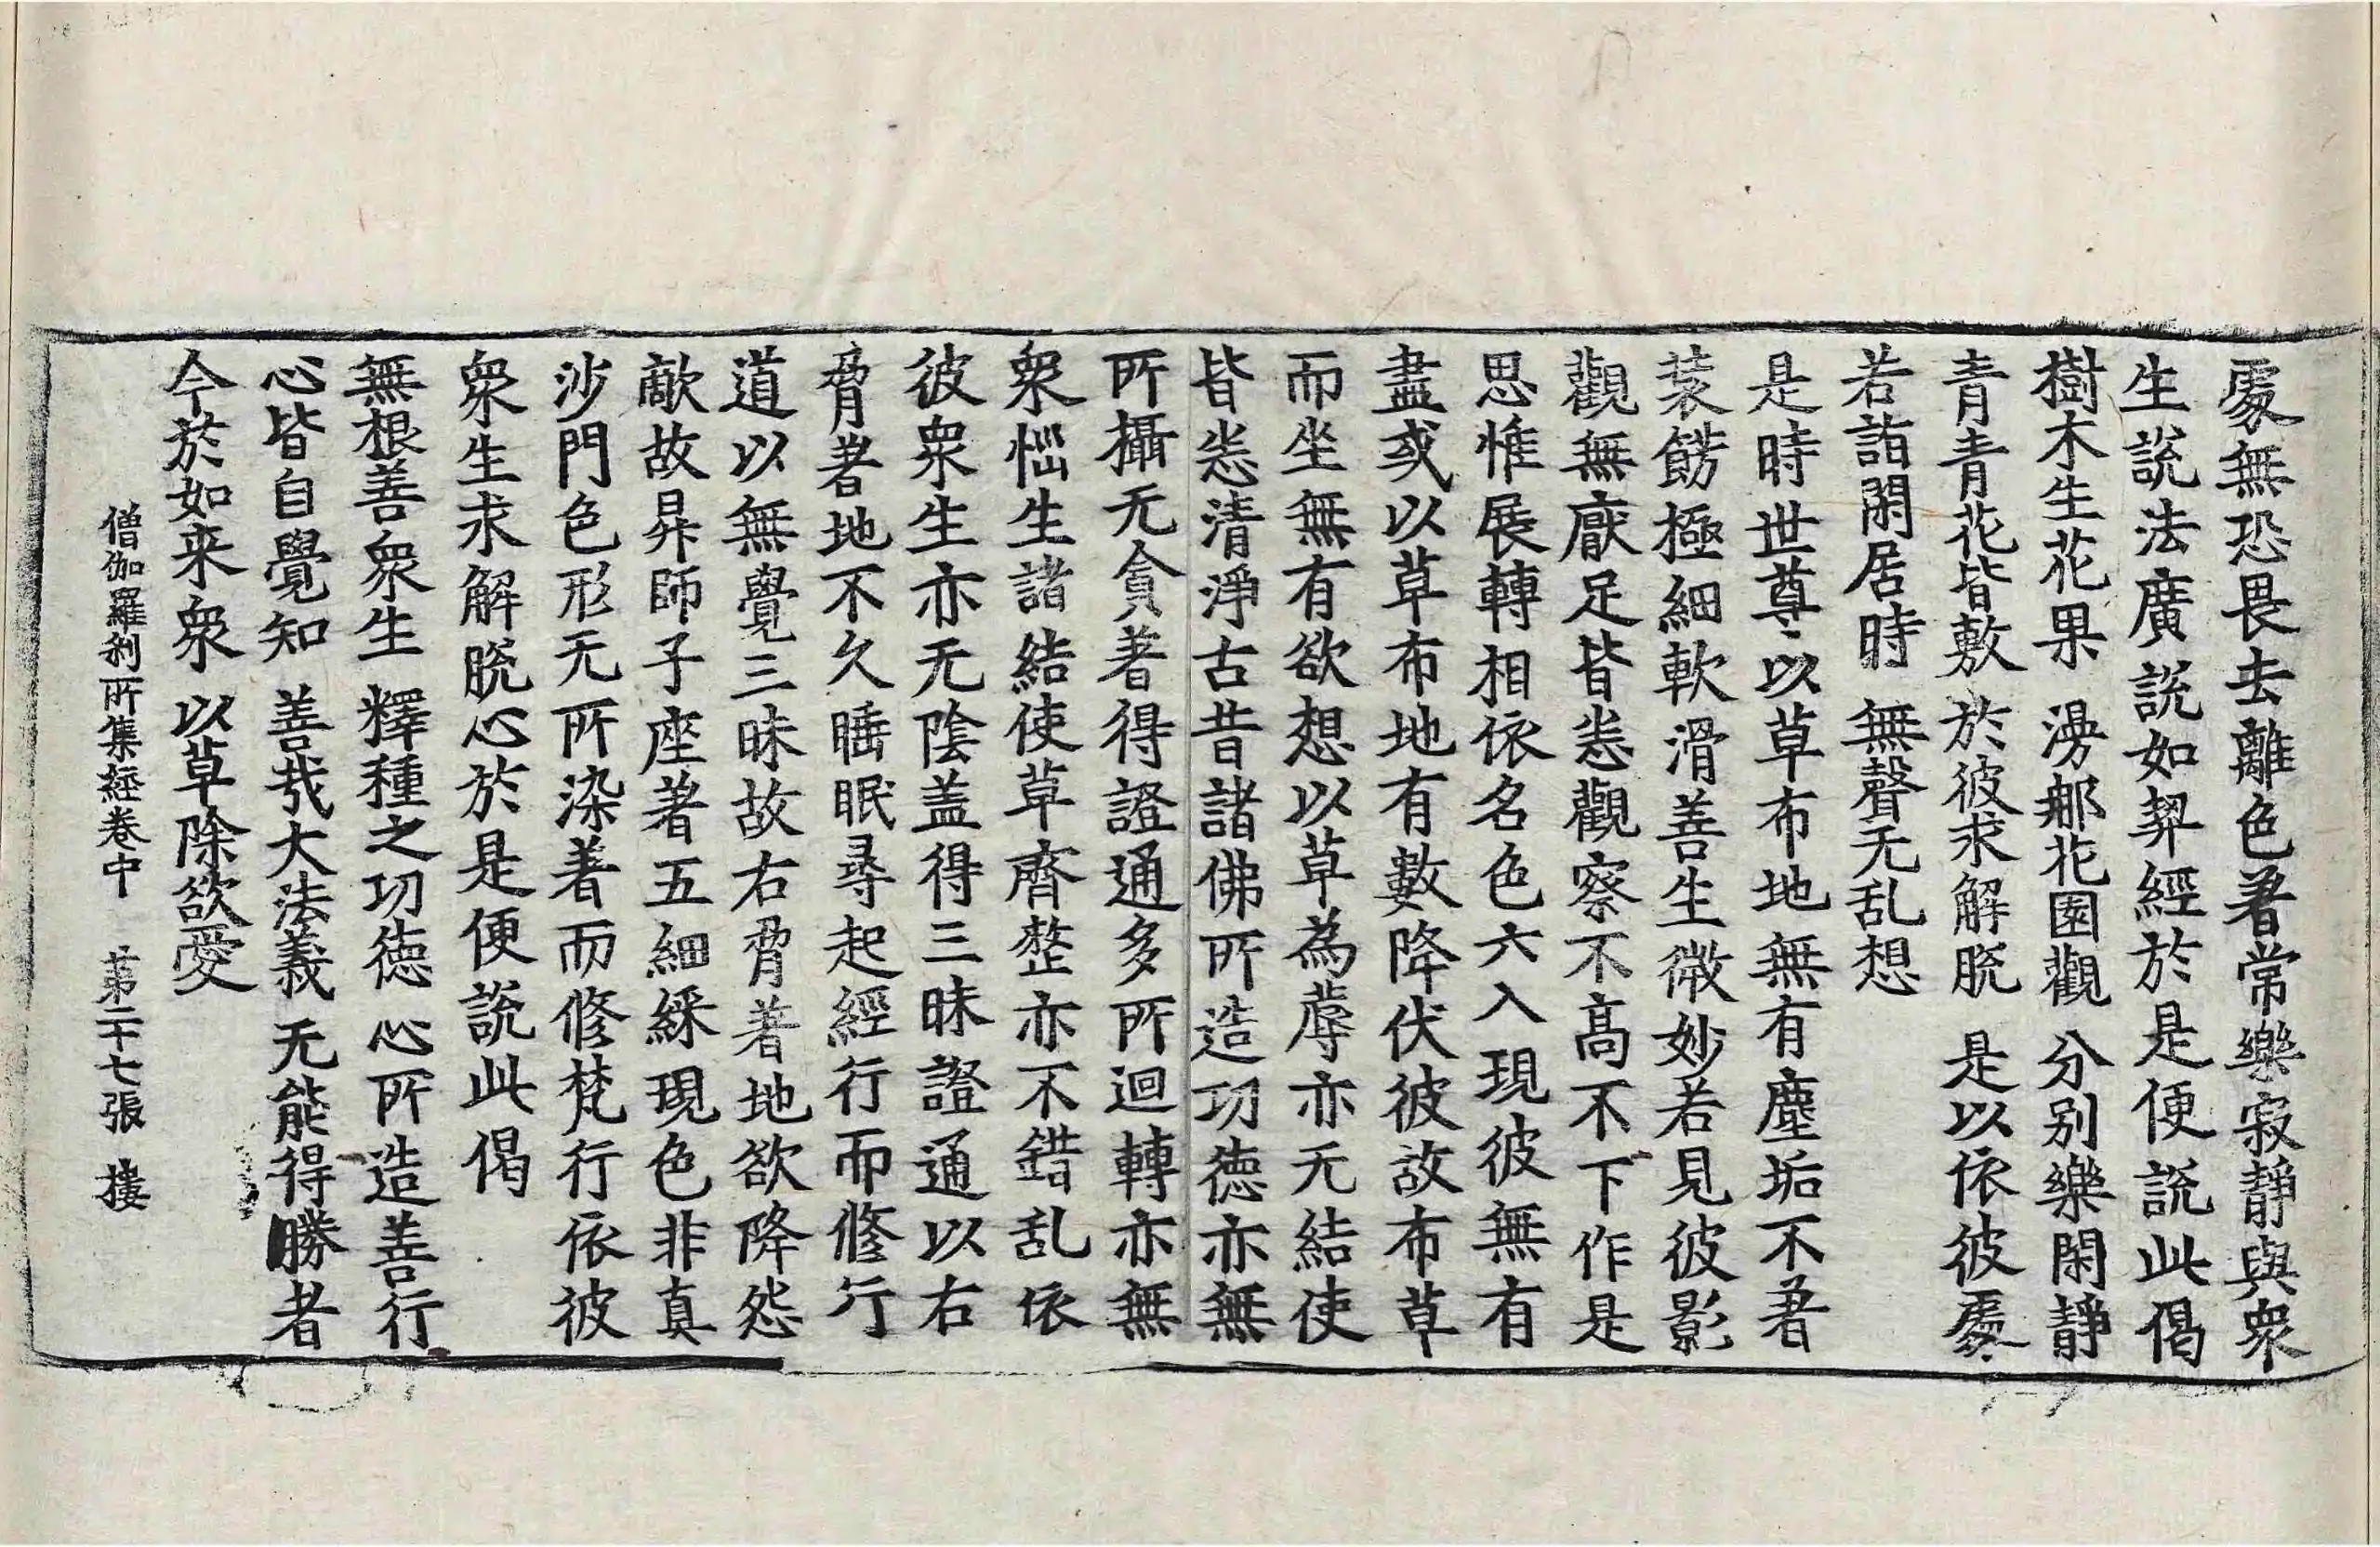 處無恐畏去離色著常樂寂靜與衆
生說法廣說如契經於是便說此偈
樹木生花果 澇郍花園觀 分别樂閑靜
青青花皆敷 於彼求解脫 是以依彼處
若詣閑居時 無聲无乱想
是時世尊以草布地無有塵垢不著
裝餝極細軟滑善生微妙若見彼影
觀無厭足皆悉觀察不高不下作是
思惟展轉相依名色六入現彼無有
盡或以草布地有數降伏彼故布草
而坐無有欲想以草為蓐亦无結使
皆悉清淨古昔諸佛所造功德亦無
所攝无貪著得證通多所迴轉亦無
衆惱生諸結使草齊整亦不錯乱依
彼衆生亦无陰盖得三昧證通以右
脅著地不久睡眠尋起經行而修行
道以無覺三昧故右脅著地欲降怨
敵故昇師子座著五細綵現色非真
沙門色形无所染著而修梵行依彼
衆生求解脫心於是便說此偈
無根善衆生 釋種之功德 心所造善行
心皆自覺知 善㦲大法義 无能得勝者
今於如来衆 以草除欲愛
僧伽羅刹所集經卷中 第二十七張 摟